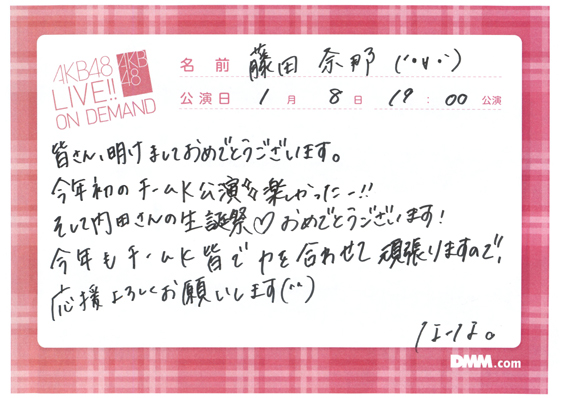 AKB48
LIVE!!
ON DEMAND
AKB
48
名前 藤田 奈那 (´・v・`)
公演日 1月 8日 19:00 公演
皆さん、明けましておめでとうございます。
今年初のチームK公演 楽しかったー!!
そして内田さんの生誕祭♡おめでとうございます!
今年もチームK皆で力を合わせて頑張りますので、
応援よろしくお願いします(^^)
なーな。
DMM.com